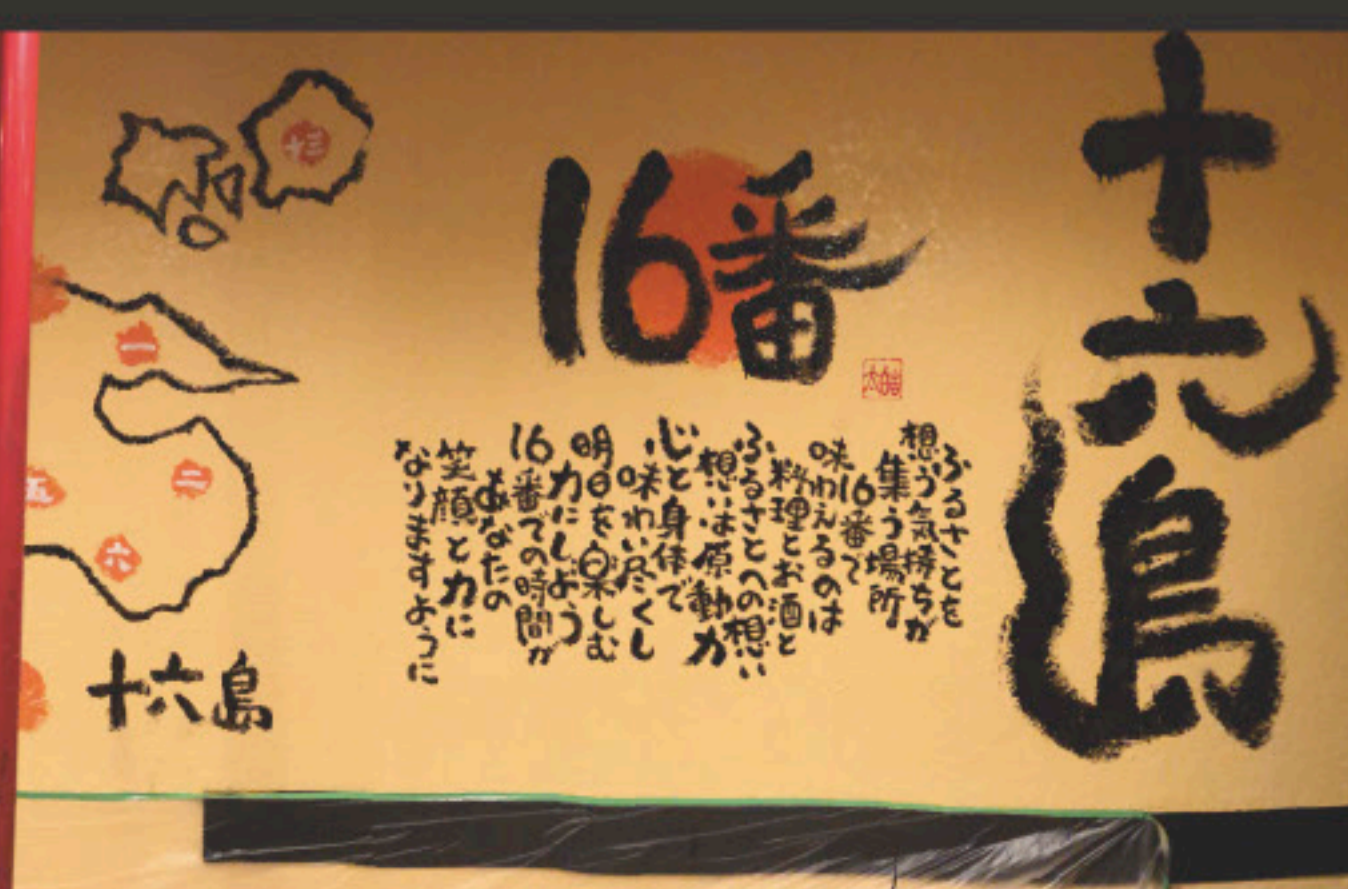 十六島
16番
ふるさとを
想う気持ちが
集う場所
16番で
味わえるのは
料理とお酒と
ふるさとへの想い
想いは原動力
心と身体で
味わい尽くし
明日を楽しむ
力にしよう
16番での時間が
あなたの
笑顔と力に
なりますように
十三
一
二
五
六
十六島